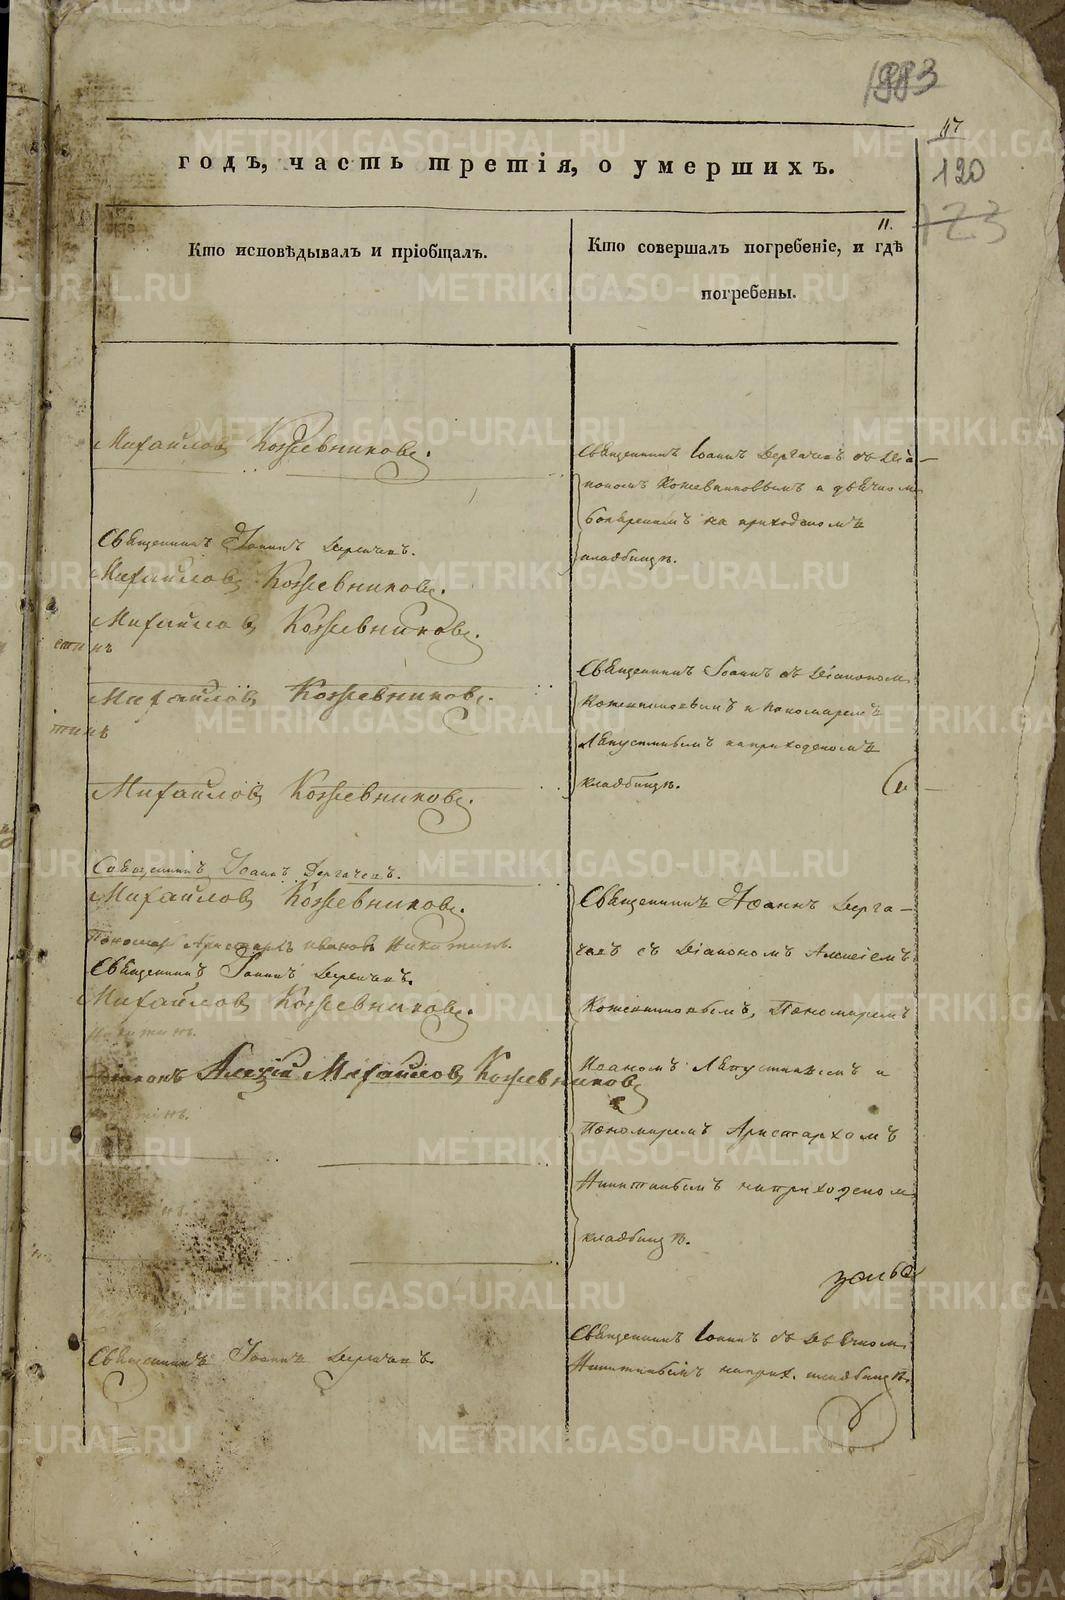 1883
117
120
123
годъ, часть третія, о умершихъ.
11.
Кто исповѣдывалъ и пріобщалъ.
Кто совершалъ погребеніе, и гдѣ
погребены.
Михайловъ Кожевниковъ.
Священникъ Іоаннъ Дергачевъ
Михайловъ Кожевниковъ.
Михайловъ Кожевниковъ.
Михайловъ Кожевниковъ.
Михайловъ Кожевниковъ.
Священникъ Іоаннъ Дергачевъ.
Михайловъ Кожевниковъ.
Пономарь Аристархъ Ивановъ Никитинъ.
Священникъ Іоаннъ Дергачевъ.
Михайловъ Кожевниковъ.
Никитинъ.
Діаконъ Алексій Михайловъ Кожевниковъ
Священникъ Іоаннъ Дергачевъ.
Священникъ Іоаннъ Дергачевъ съ Діа-
кономъ Кожевниковымъ и дьячкомъ
на приходскомъ
кладбищѣ.
Священникъ Іоаннъ съ Діакономъ
Кожевниковымъ и Пономаремъ
на приходскомъ
кладбищѣ.
Священникъ Іоаннъ Дерга-
чевъ съ Діакономъ Алексіемъ
Кожевниковымъ, Пономаремъ
Иваномъ и
Пономаремъ Аристархомъ
Никитинымъ на приходскомъ
кладбищѣ.
Священникъ Іоаннъ съ Дьячкомъ
Никитинымъ на прих. кладбищѣ.
METRIKI.GASO-URAL.RU